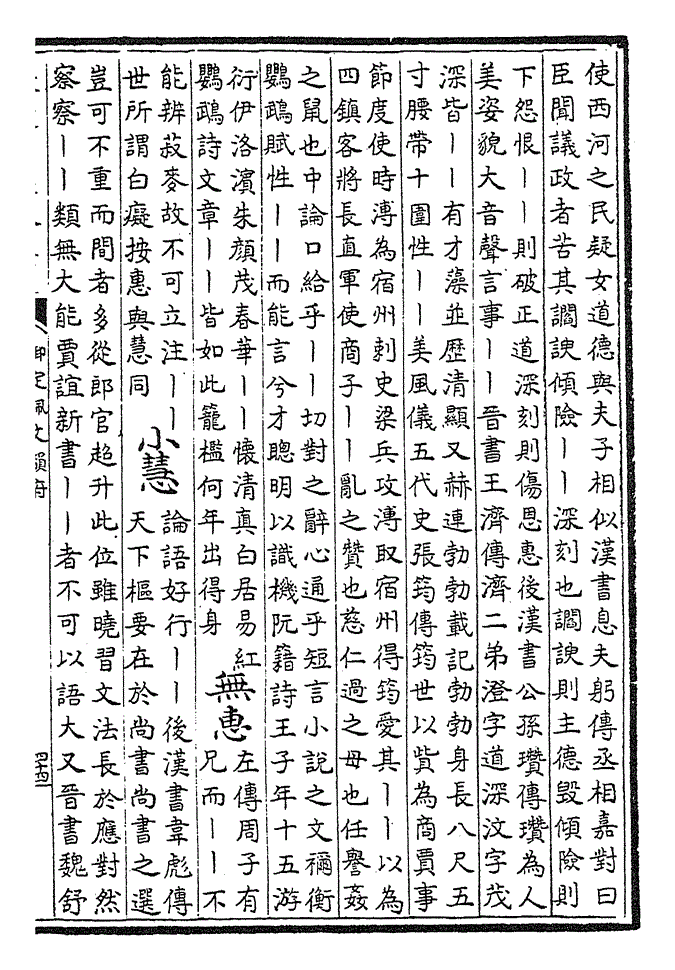 使西河之民疑女道德與夫子相似漢書息夫躬傳丞相嘉對曰
臣聞議政者苦其讇諛傾險丨丨深刻也讇諛則主德毀傾險則
下怨恨丨丨則破正道深刻則傷恩惠後漢書公孫瓚傳瓚為人
美姿貌大音聲言事丨丨晉書王濟傳濟二弟澄字道深汶字茂
深皆丨丨有才藻並歷清顯又赫連勃勃載記勃勃身長八尺五
寸腰帶十圍性丨丨美風儀五代史張筠傳筠世以貲為商賈事
節度使時溥為宿州刺史梁兵攻溥取宿州得筠愛其丨丨以為
四鎮客將長直軍使商子丨丨亂之贊也慈仁過之母也任譽姦
之鼠也中論口給乎丨丨切對之辭心通乎短言小說之文禰衡
鸚鵡賦性丨丨而能言兮才聰明以識機阮籍詩王子年十五游
衍伊洛濱朱顏茂春華丨丨懷清真白居易紅
鸚鵡詩文章丨丨皆如此籠檻何年出得身
無惠
左傳周子有
兄而丨丨不
能辨菽麥故不可立注丨丨
世所謂白癡按惠與慧同
小慧
論語好行丨丨後漢書韋彪傳
天下樞要在於尚書尚書之選
豈可不重而間者多從郎官超升此位雖曉習文法長於應對然
察察丨丨類無大能賈誼新書丨丨者不可以語大又晉書魏舒
御定佩文韻府